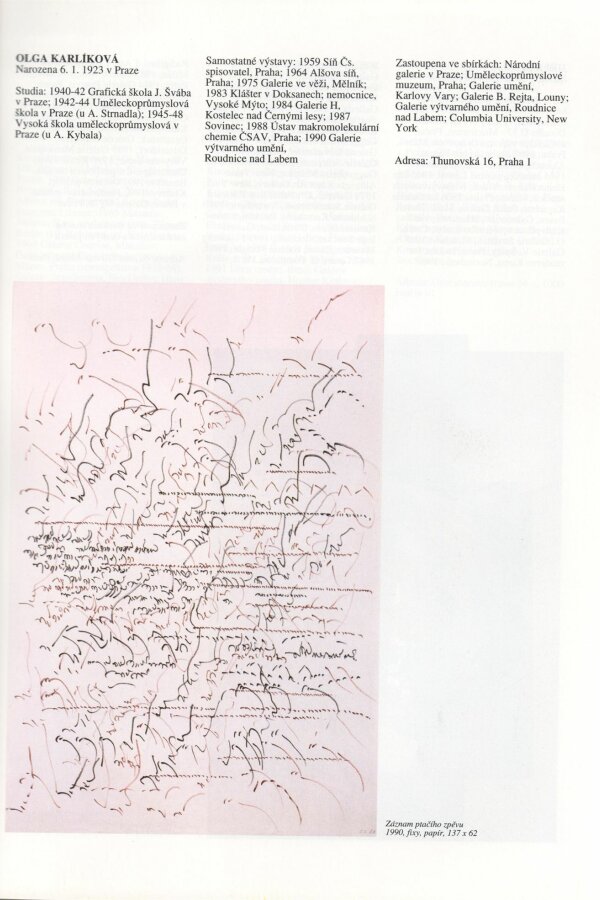 OLGA KARLÍKOVÁ
Narozena 6. 1. 1923 v Praze
Studia: 1940-42 Grafická škola J. Švába
v Praze; 1942-44 Uměleckoprůmyslová
škola v Praze (u A. Strnadla); 1945-48
Vysoká škola uměleckoprůmyslová v
Praze (u A. Kybala)
Samostatné výstavy: 1959 Síň Čs.
spisovatel, Praha; 1964 Alšova síň,
Praha; 1975 Galerie ve věži, Mělník;
1983 Klášter v Doksanech; nemocnice,
Vysoké Mýto; 1984 Galerie H,
Kostelec nad Černými lesy; 1987
Sovinec; 1988 Ústav makromolekulární
chemie ČSAV, Praha; 1990 Galerie
výtvarného umění,
Roudnice nad Labem
Zastoupena ve sbírkách: Národní
galerie v Praze; Uměleckoprůmyslové
muzeum, Praha; Galerie umění,
Karlovy Vary; Galerie B. Rejta, Louny;
Galerie výtvarného umění, Roudnice
nad Labem; Columbia University, New
York
Adresa: Thunovská 16, Praha 1
Záznam ptačího zpěvu
1990, fixy, papír, 137 x 62